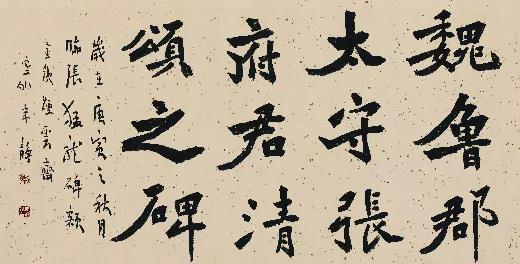 魏魯郡
太守張
府君清
頌之碑
歲在庚寅之秋月
臨張猛龍碑額